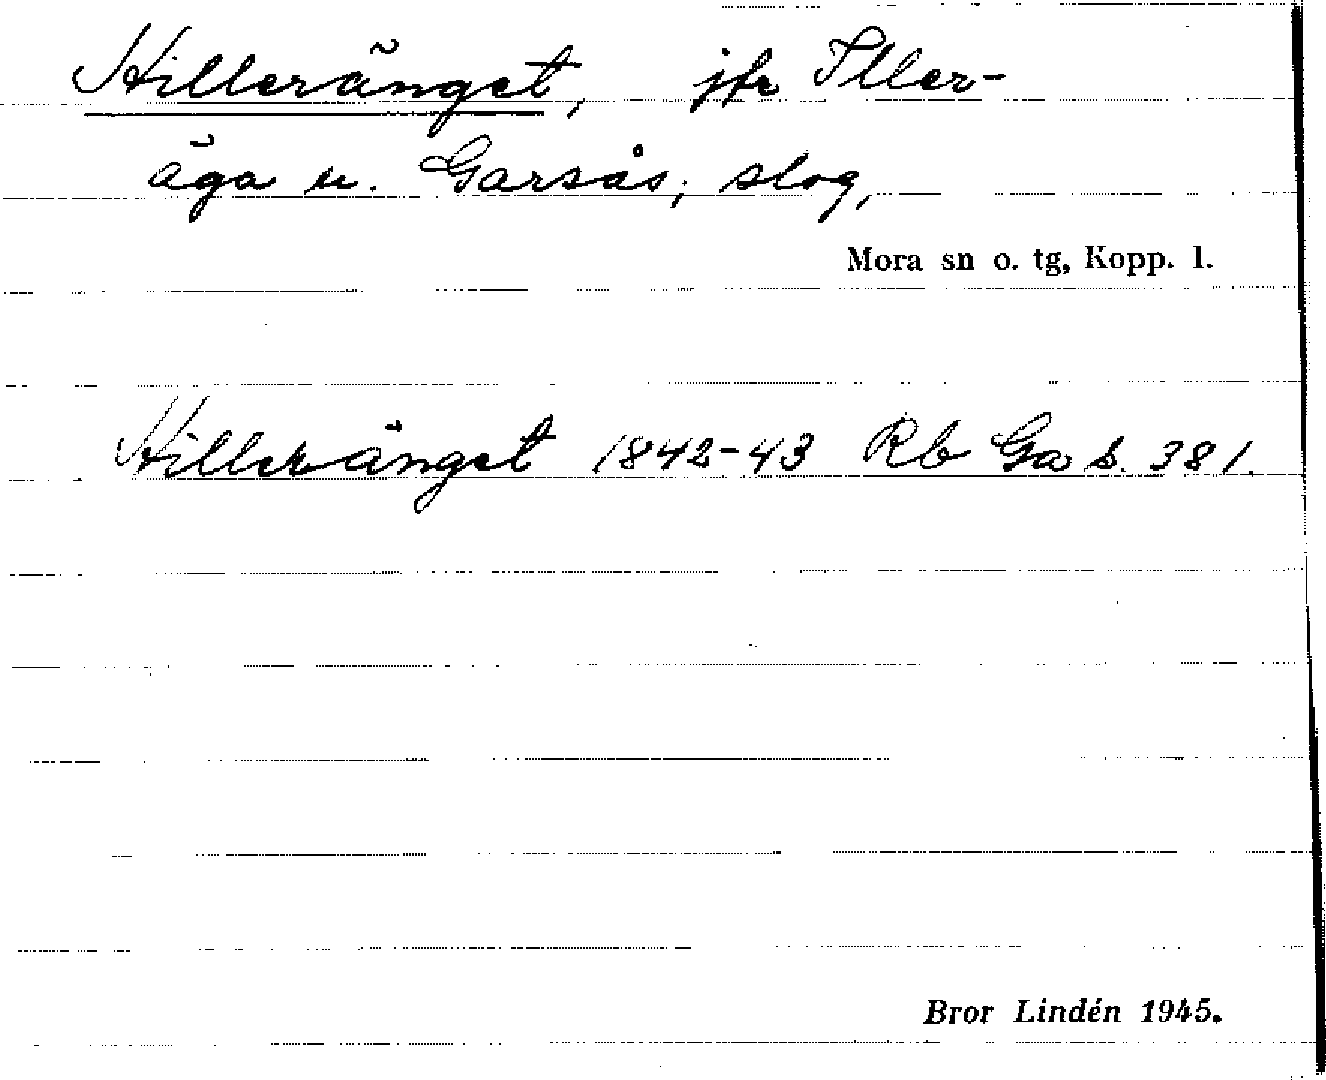 Hilleränget, jfr Iller-
äga u. Garsås; slog,
Mora sn o. tg, Kopp. l.
Hilleränget 1842-43 Rb Ga s. 381.
Bror Lindén 1945.